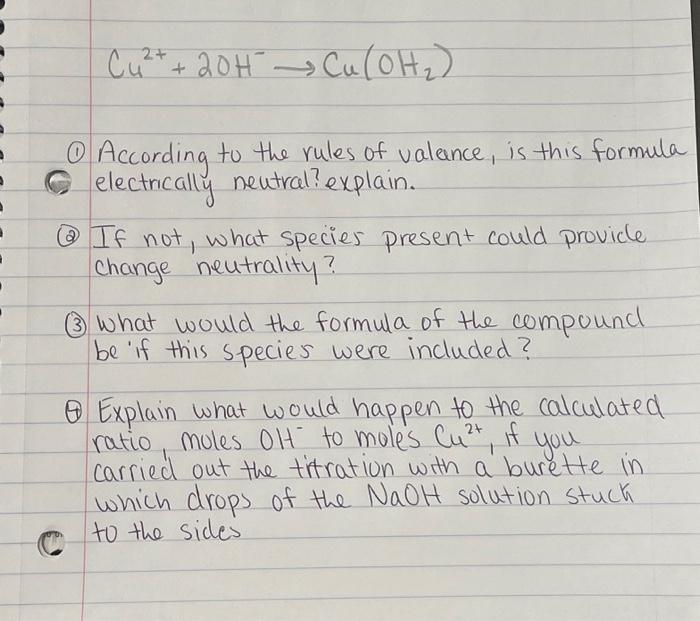 Cu²⁺ + 2OH⁻ → Cu(OH₂)
① According to the rules of valance, is this formula
electrically neutral? explain.
② If not, what species present could provide
change neutrality?
③ What would the formula of the compound
be if this species were included?
④ Explain what would happen to the calculated
ratio, moles OH⁻ to moles Cu²⁺, if you
carried out the titration with a burette in
which drops of the NaOH solution stuck
to the sides